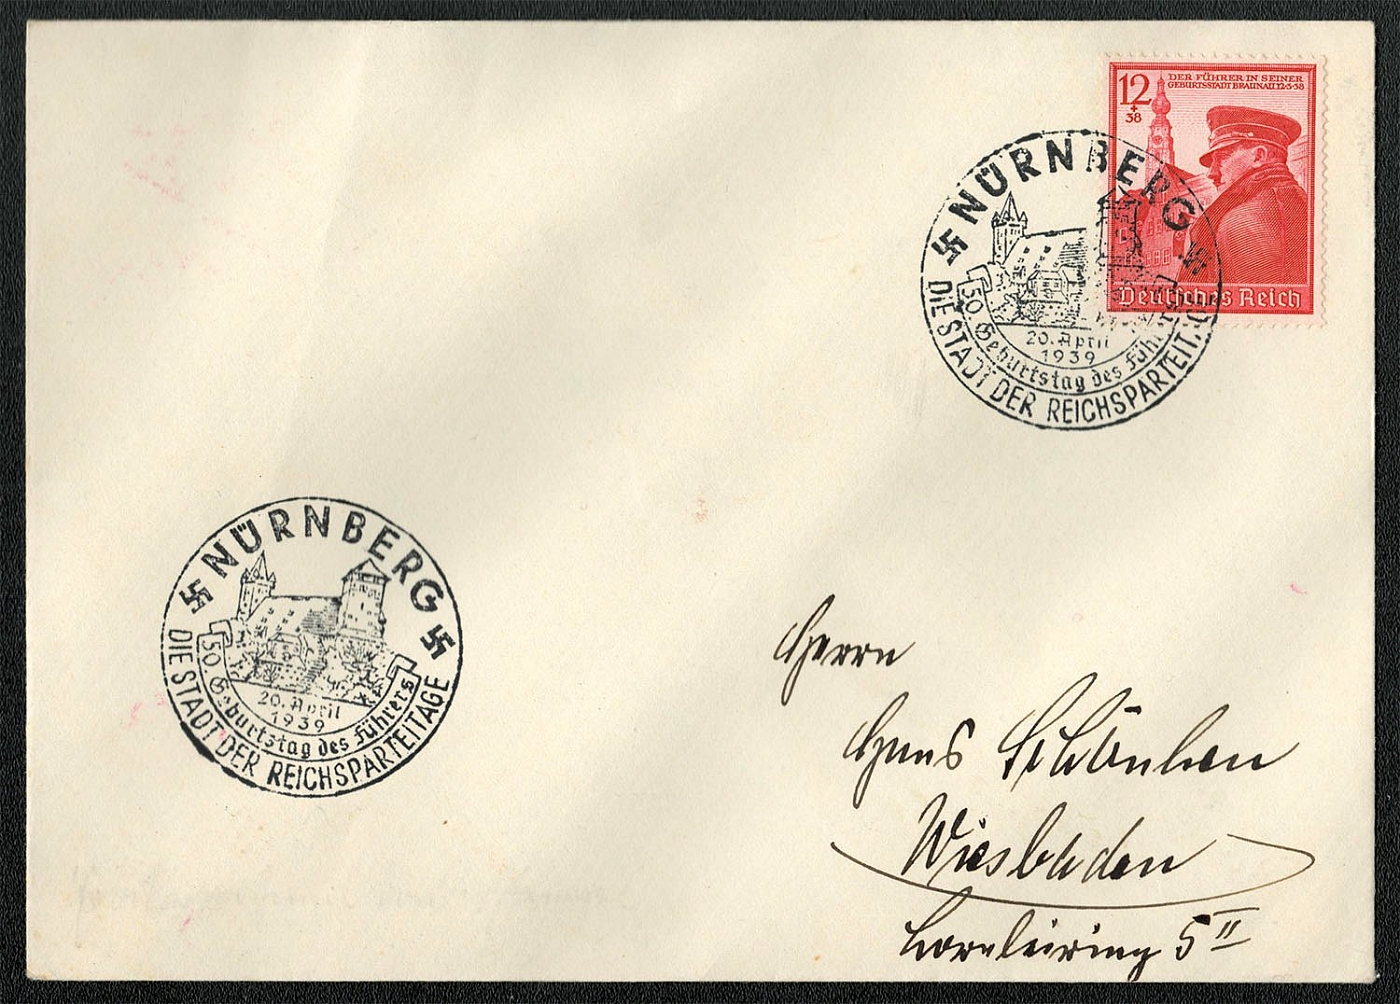 12
+
38
DER FÜHRER IN SEINER
GEBURTSSTADT BRAUNAU 12·3·38
Deutsches Reich
NÜRNBERG
20. April
1939
50. Geburtstag des Führers
DIE STADT DER REICHSPARTEIT
NÜRNBERG
20. April
1939
50. Geburtstag des Führers
DIE STADT DER REICHSPARTEITAGE
Herrn
Hans
Wiesbaden
5 II